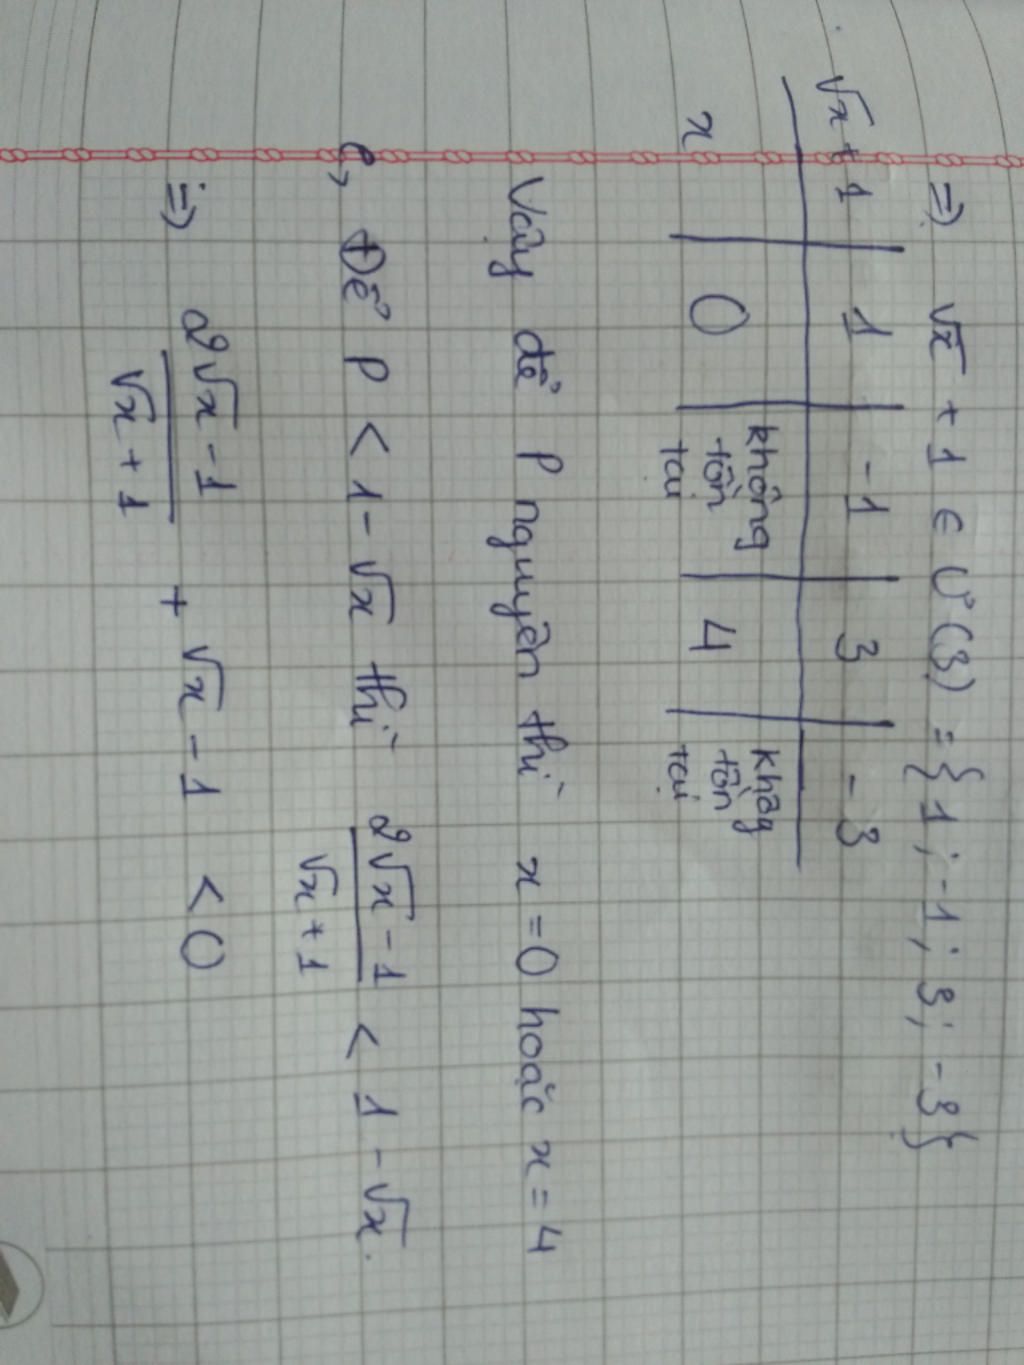 => √x + 1 ∈ Ư(3) = {1; -1; 3; -3}
√x + 1 | 1 | -1 | 3 | -3
x | 0 | không tồn tại | 4 | không tồn tại
Vậy để P nguyên thì x = 0 hoặc x = 4
e, Để P < 1 - √x thì (2√x - 1)/(√x + 1) < 1 - √x.
=> (2√x - 1)/(√x + 1) + √x - 1 < 0